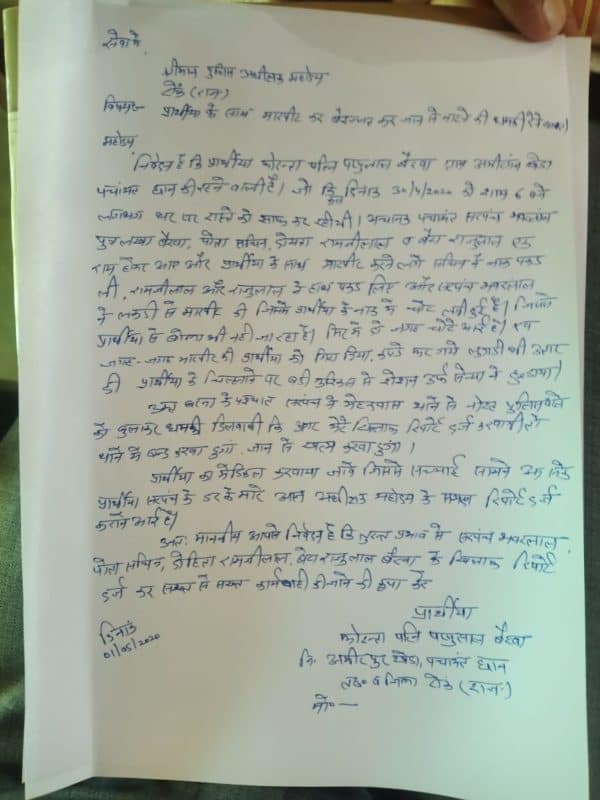 सेवा में,
श्रीमान पुलिस अधीक्षक महोदय
टोंक (राज.)
विषय:- प्रार्थीया के साथ मारपीट कर बेरहमी कर जान से मारने की धमकी देने
महोदय
निवेदन है कि प्रार्थीया पत्नि पप्पुलाल बैरवा ग्राम खेडा
पंचायत छान की रहने वाली है। जो कि दिनांक 30/4/2020 को शाम 6 बजे
लगभग घर पर रास्ते को साफ कर रही थी। अचानक पंचायत सरपंच भवरलाल
पुत्र लखा बैरवा, पोता सचिन, दोयता रामजीलाल व बेटा राजुलाल एक
राय होकर आए और प्रार्थीया के साथ मारपीट करने लगे सचिन ने पकड
ली, रामजीलाल और राजुलाल ने हाथ पकड लिए और सरपंच भवरलाल
ने लकडी से मारपीट की जिसके प्रार्थीया के नाक के चोट लगी हुई है। जिससे
प्रार्थीया से बोला भी नही जा रहा है। सिर में दो जगह चोटे आई है। एवं
जगह-जगह मारपीट की प्रार्थीया को गिरा दिया, कपडे फट गये लुगडी भी उतार
दी प्रार्थीया के चिल्लाने पर बडी मुश्किल से रोशन उर्फ ने छुडाया।
उक्त घटना के पश्चात सरपंच ने मेहन्दवास थाने से पुलिसवाले
को बुलाकर धमकी दिलवायी कि अगर मेरे खिलाफ रिपोर्ट दर्ज करवायी तो
थाने में बन्द करवा दुगां, जान से खत्म करवा दुगां।
प्रार्थीया का मेडिकल करवाया जावे जिससे सच्चाई सामने आ
प्रार्थीया सरपंच के डर के मारे आज अधीक्षक महोदय के समक्ष रिपोर्ट दर्ज
कराने आई है।
अतः माननीय आपसे निवेदन है कि तुरन्त प्रभाव से सरपंच भवरलाल,
पोता सचिन, दोहिता रामजीलाल, बेटा राजुलाल बैरवा के खिलाफ रिपोर्ट
दर्ज कर सख्त से सख्त कार्यवाही की जाने की कृपा करें
प्रार्थीया
पत्नि पप्पुलाल बैरवा
दिनांक
01/05/2020
नि. खेडा, पंचायत छान
तह० व जिला टोंक (राज.)
मो० —